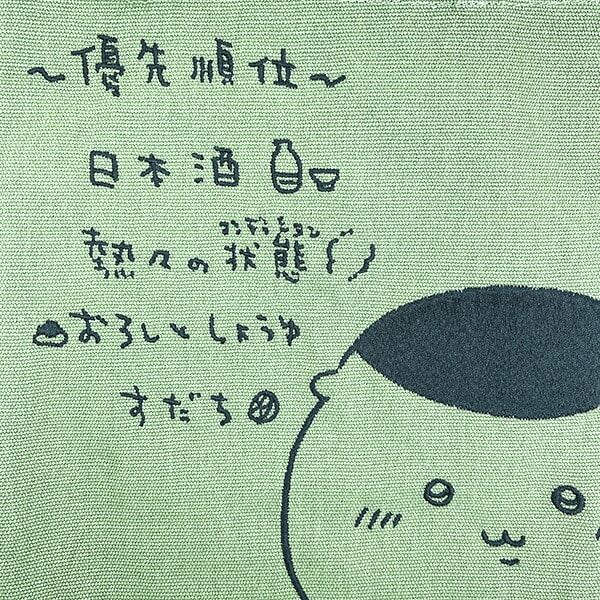 ～優先順位～
日本酒
熱々の状態
コンディション
おろしとしょうゆ
すだち